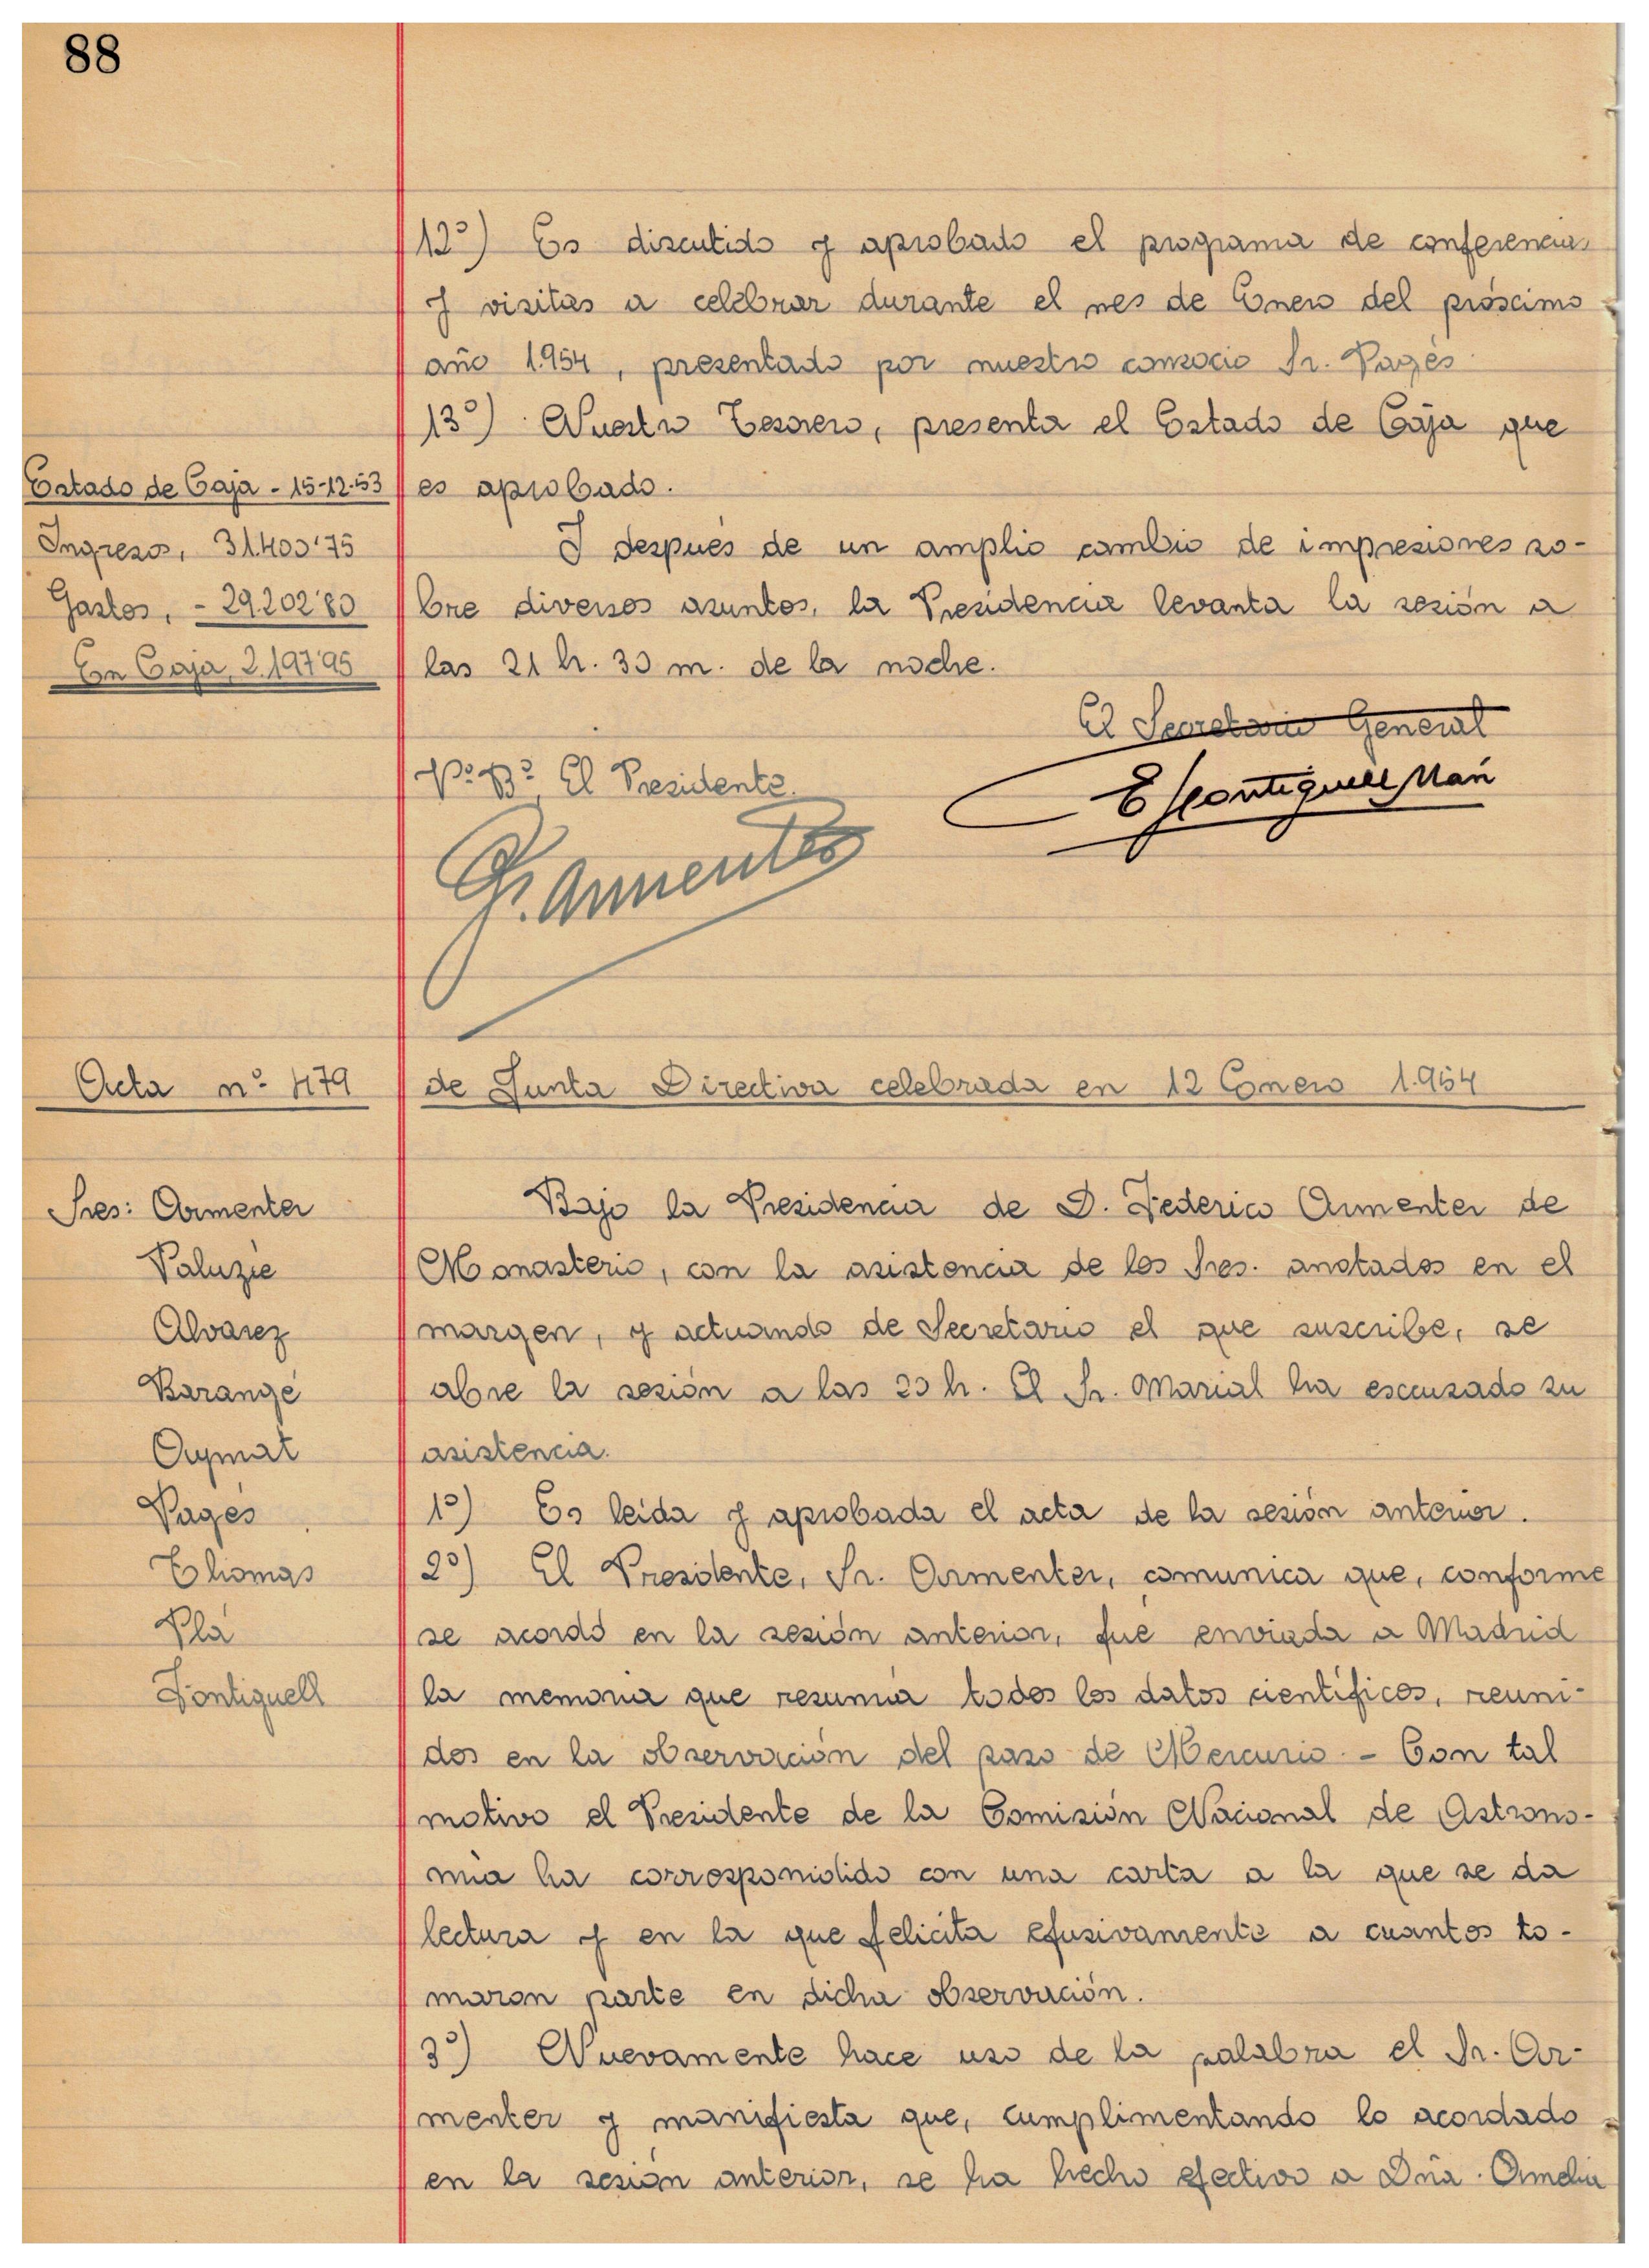 88
12º) Es discutido y aprobado el programa de conferencias
y visitas a celebrar durante el mes de Enero del próscimo
año 1.954, presentado por nuestro consocio Sr. Pagès.
13º) Nuestro Tesorero, presenta el Estado de Caja que
es aprobado.
Estado de Caja - 15-12-53
Ingresos, 31.400'75
Gastos, - 29.202'80
En Caja, 2.197'95
Y después de un amplio cambio de impresiones so-
bre diversos asuntos, la Presidencia levanta la sesión a
las 21 h. 30 m. de la noche.
El Secretario General
Vº Bº El Presidente.
F. Armenter
Acta nº 479 de Junta Directiva celebrada en 12 Enero 1.954
Sres: Armenter
Paluzíe
Alvarez
Barangé
Aymat
Pagés
Thomas
Plá
Fontiguell
Bajo la Presidencia de D. Federico Armenter de
Monasterio, con la asistencia de los Sres. anotados en el
margen, y actuando de Secretario el que suscribe, se
abre la sesión a las 20 h. El Sr. Marial ha escusado su
asistencia.
1º) Es leída y aprobada el acta de la sesión anterior.
2º) El Presidente, Sr. Armenter, comunica que, conforme
se acordó en la sesión anterior, fué enviada a Madrid
la memoria que resumía todos los datos científicos, reuni-
dos en la observación del paso de Mercurio. - Con tal
motivo el Presidente de la Comisión Nacional de Astrono-
mía ha correspondido con una carta a la que se da
lectura y en la que felicita efusivamente a cuantos to-
maron parte en dicha observación.
3º) Nuevamente hace uso de la palabra el Sr. Ar-
menter y manifiesta que, cumplimentando lo acordado
en la sesión anterior, se ha hecho efectivo a Dña. Amelia